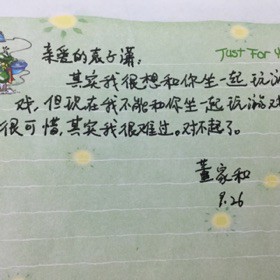 Just For Y
亲爱的袁子潇：
其实我很想和你坐一起玩游
戏，但现在我不能和你坐一起玩游戏
很可惜，其实我很难过。对不起了。
董家和
9.26